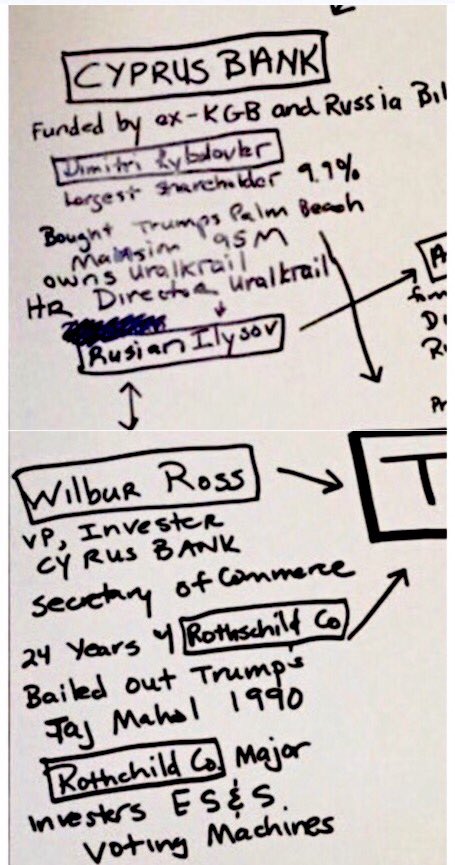 CYPRUS BANK
Funded by ex-KGB and Russia Bil
Dimitri Rybdovler
Largest shareholder 9.9%
Bought Trumps Palm Beach
Mansion 95M
owns uralkrail
HR Director uralkrail
Rusian Ilysov
A
Di
R
Pr
Wilbur Ross
VP, Invester
CYPRUS BANK
Secretary of Commerce
24 Years y Rothschild Co
Bailed out Trump's
Taj Mahal 1990
T
Rothchild Co. Major
Investers ES&S.
Voting Machines